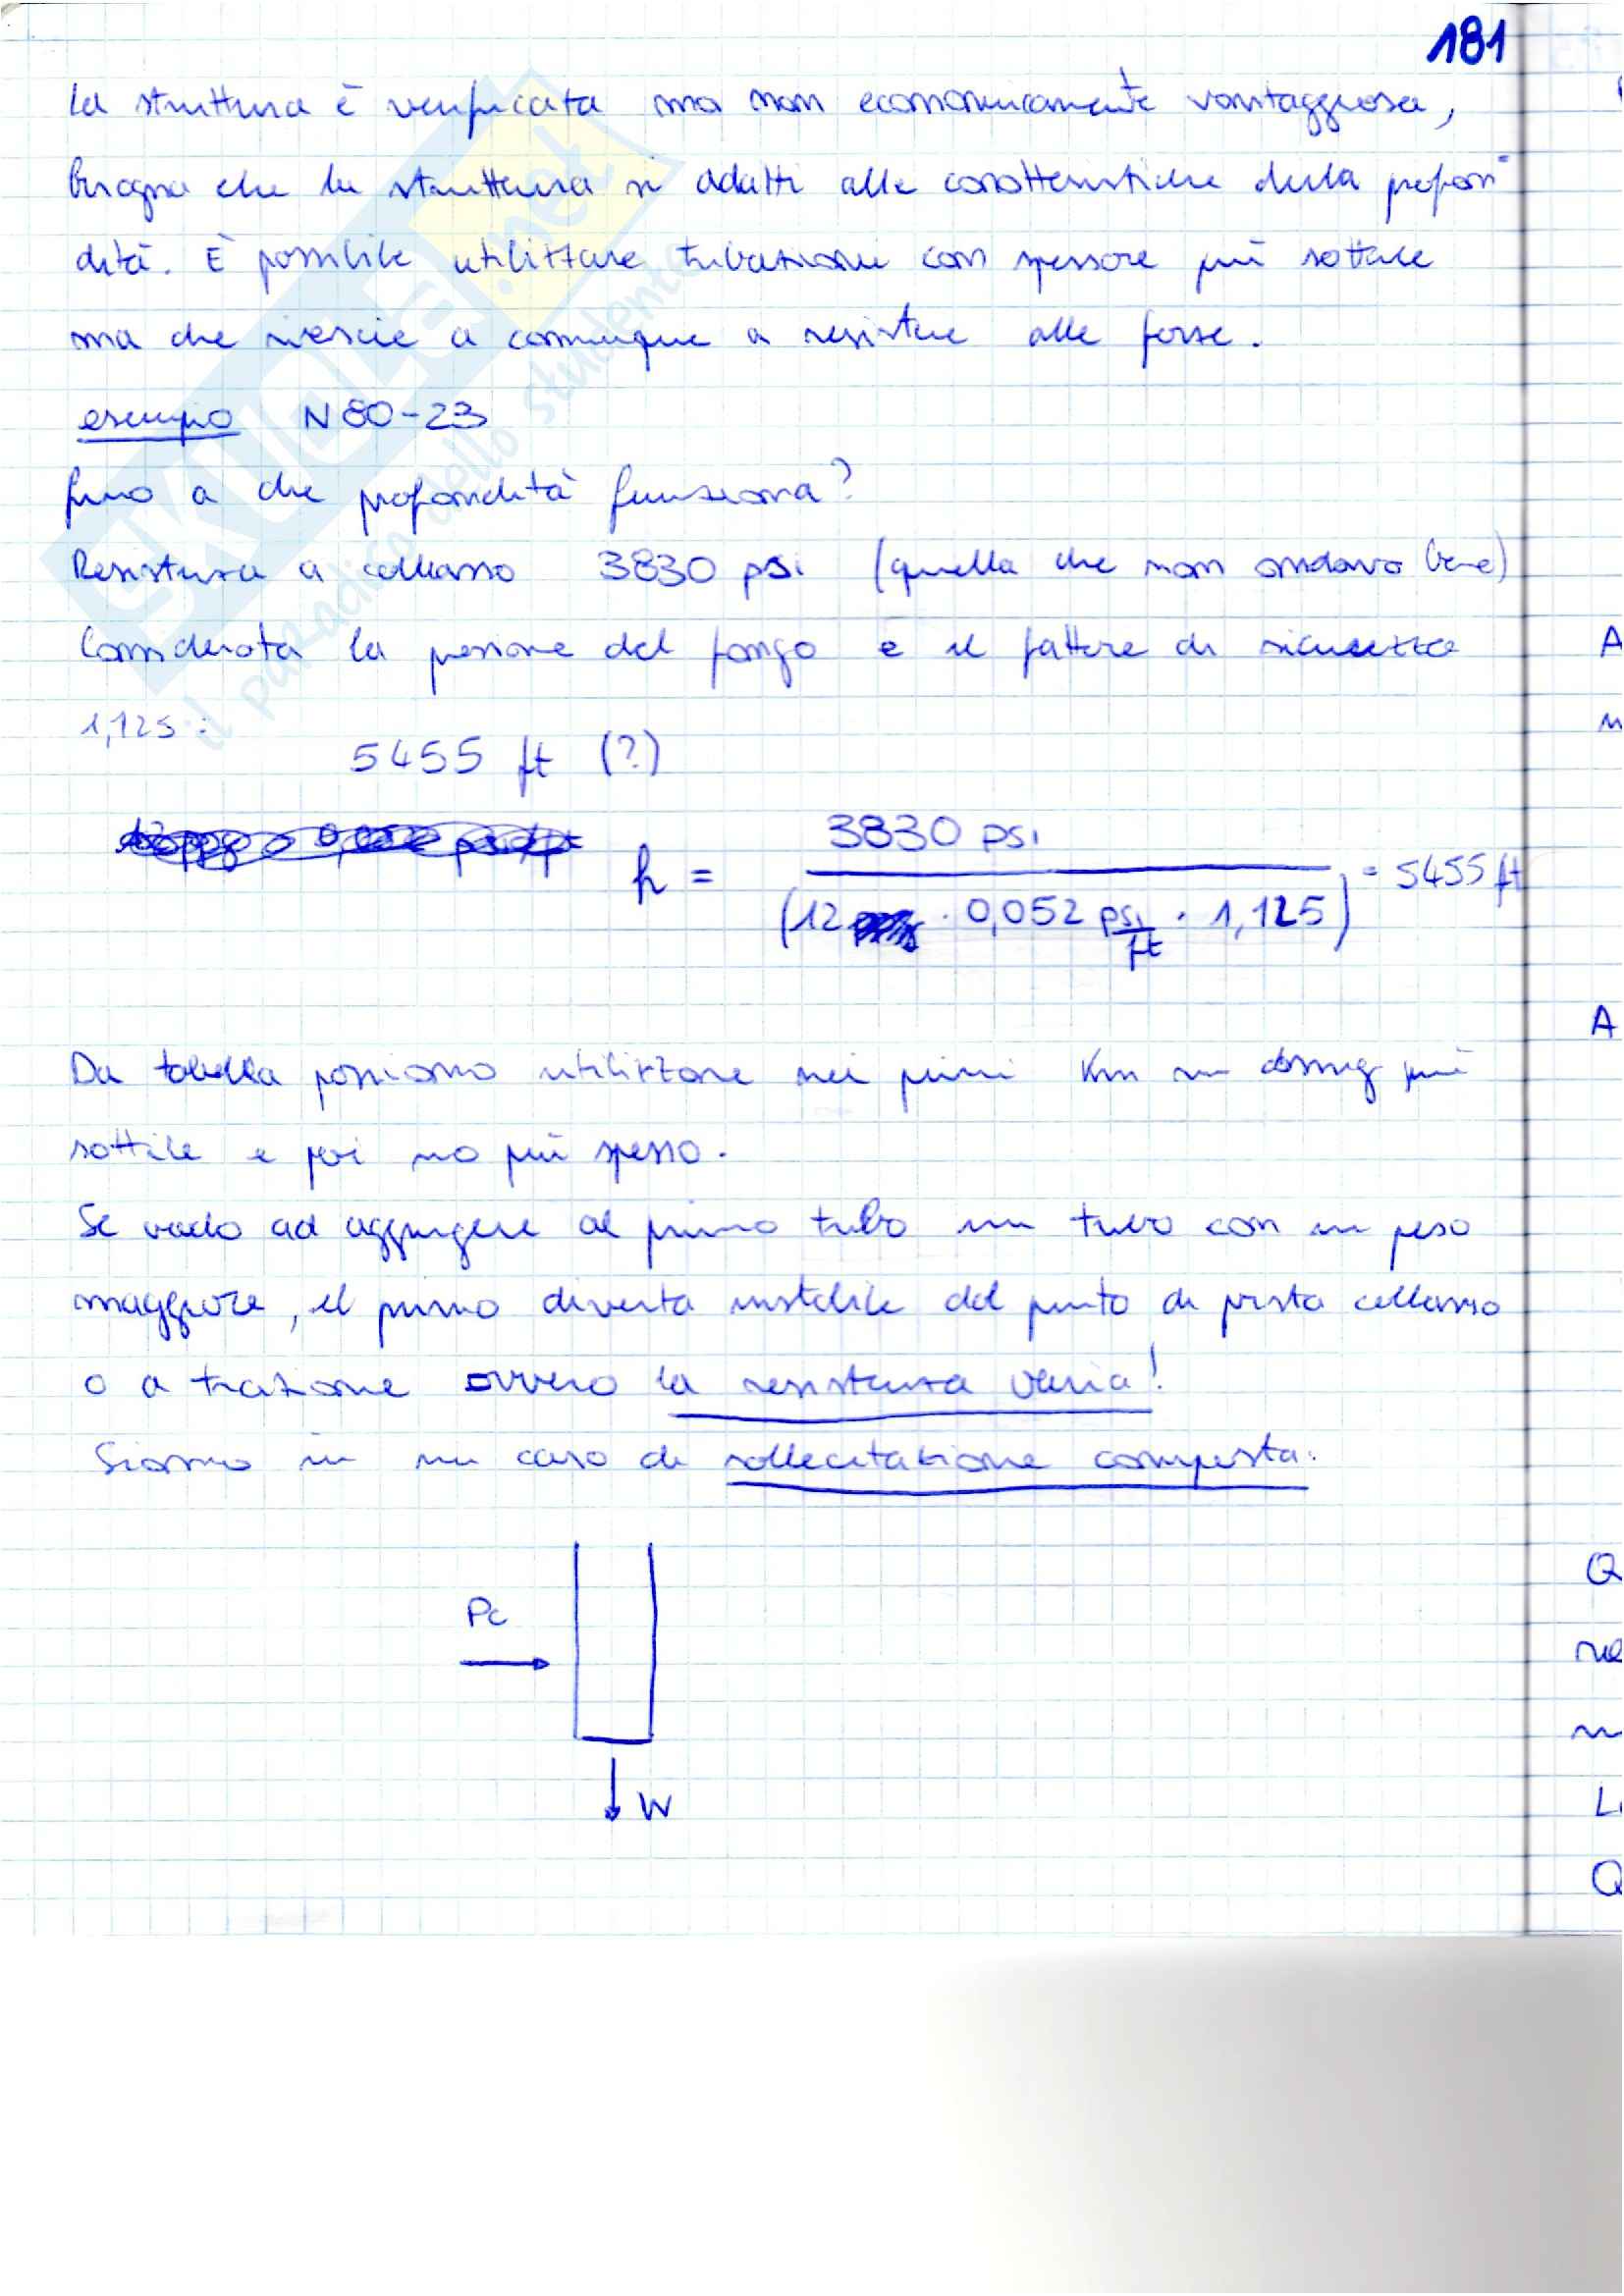 181
La struttura è verificata ma non economicamente vantaggiosa,
bisogna che la struttura si adatti alle caratteristiche della profon
dità. È possibile utilizzare tubazione con spessore più sottile
ma che riescie a comunque a resistere alle forze.
esempio N80-23
fino a che profondità funziona?
Resistenza a collasso 3830 psi (quella che non andava bene)
Considerata la pressione del fango e il fattore di sicurezza
1,125:
5455 ft (?)
h = 3830 psi / (12 · 0,052 psi/ft · 1,125) = 5455 ft
Da tabella possiamo utilizzare nei primi Km un casing più
sottile e poi uno più spesso.
Se vado ad aggiungere al primo tubo un tubo con un peso
maggiore, il primo diventa instabile dal punto di vista collasso
o a trazione ovvero la resistenza varia!
Siamo in un caso di sollecitazione composta:
Pc
W
SKUOLA.net
il paradiso dello studente